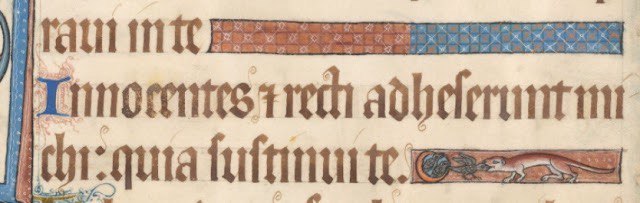 raui in te
Innocentes ⁊ recti adheserunt mi
chi: quia sustinui te.